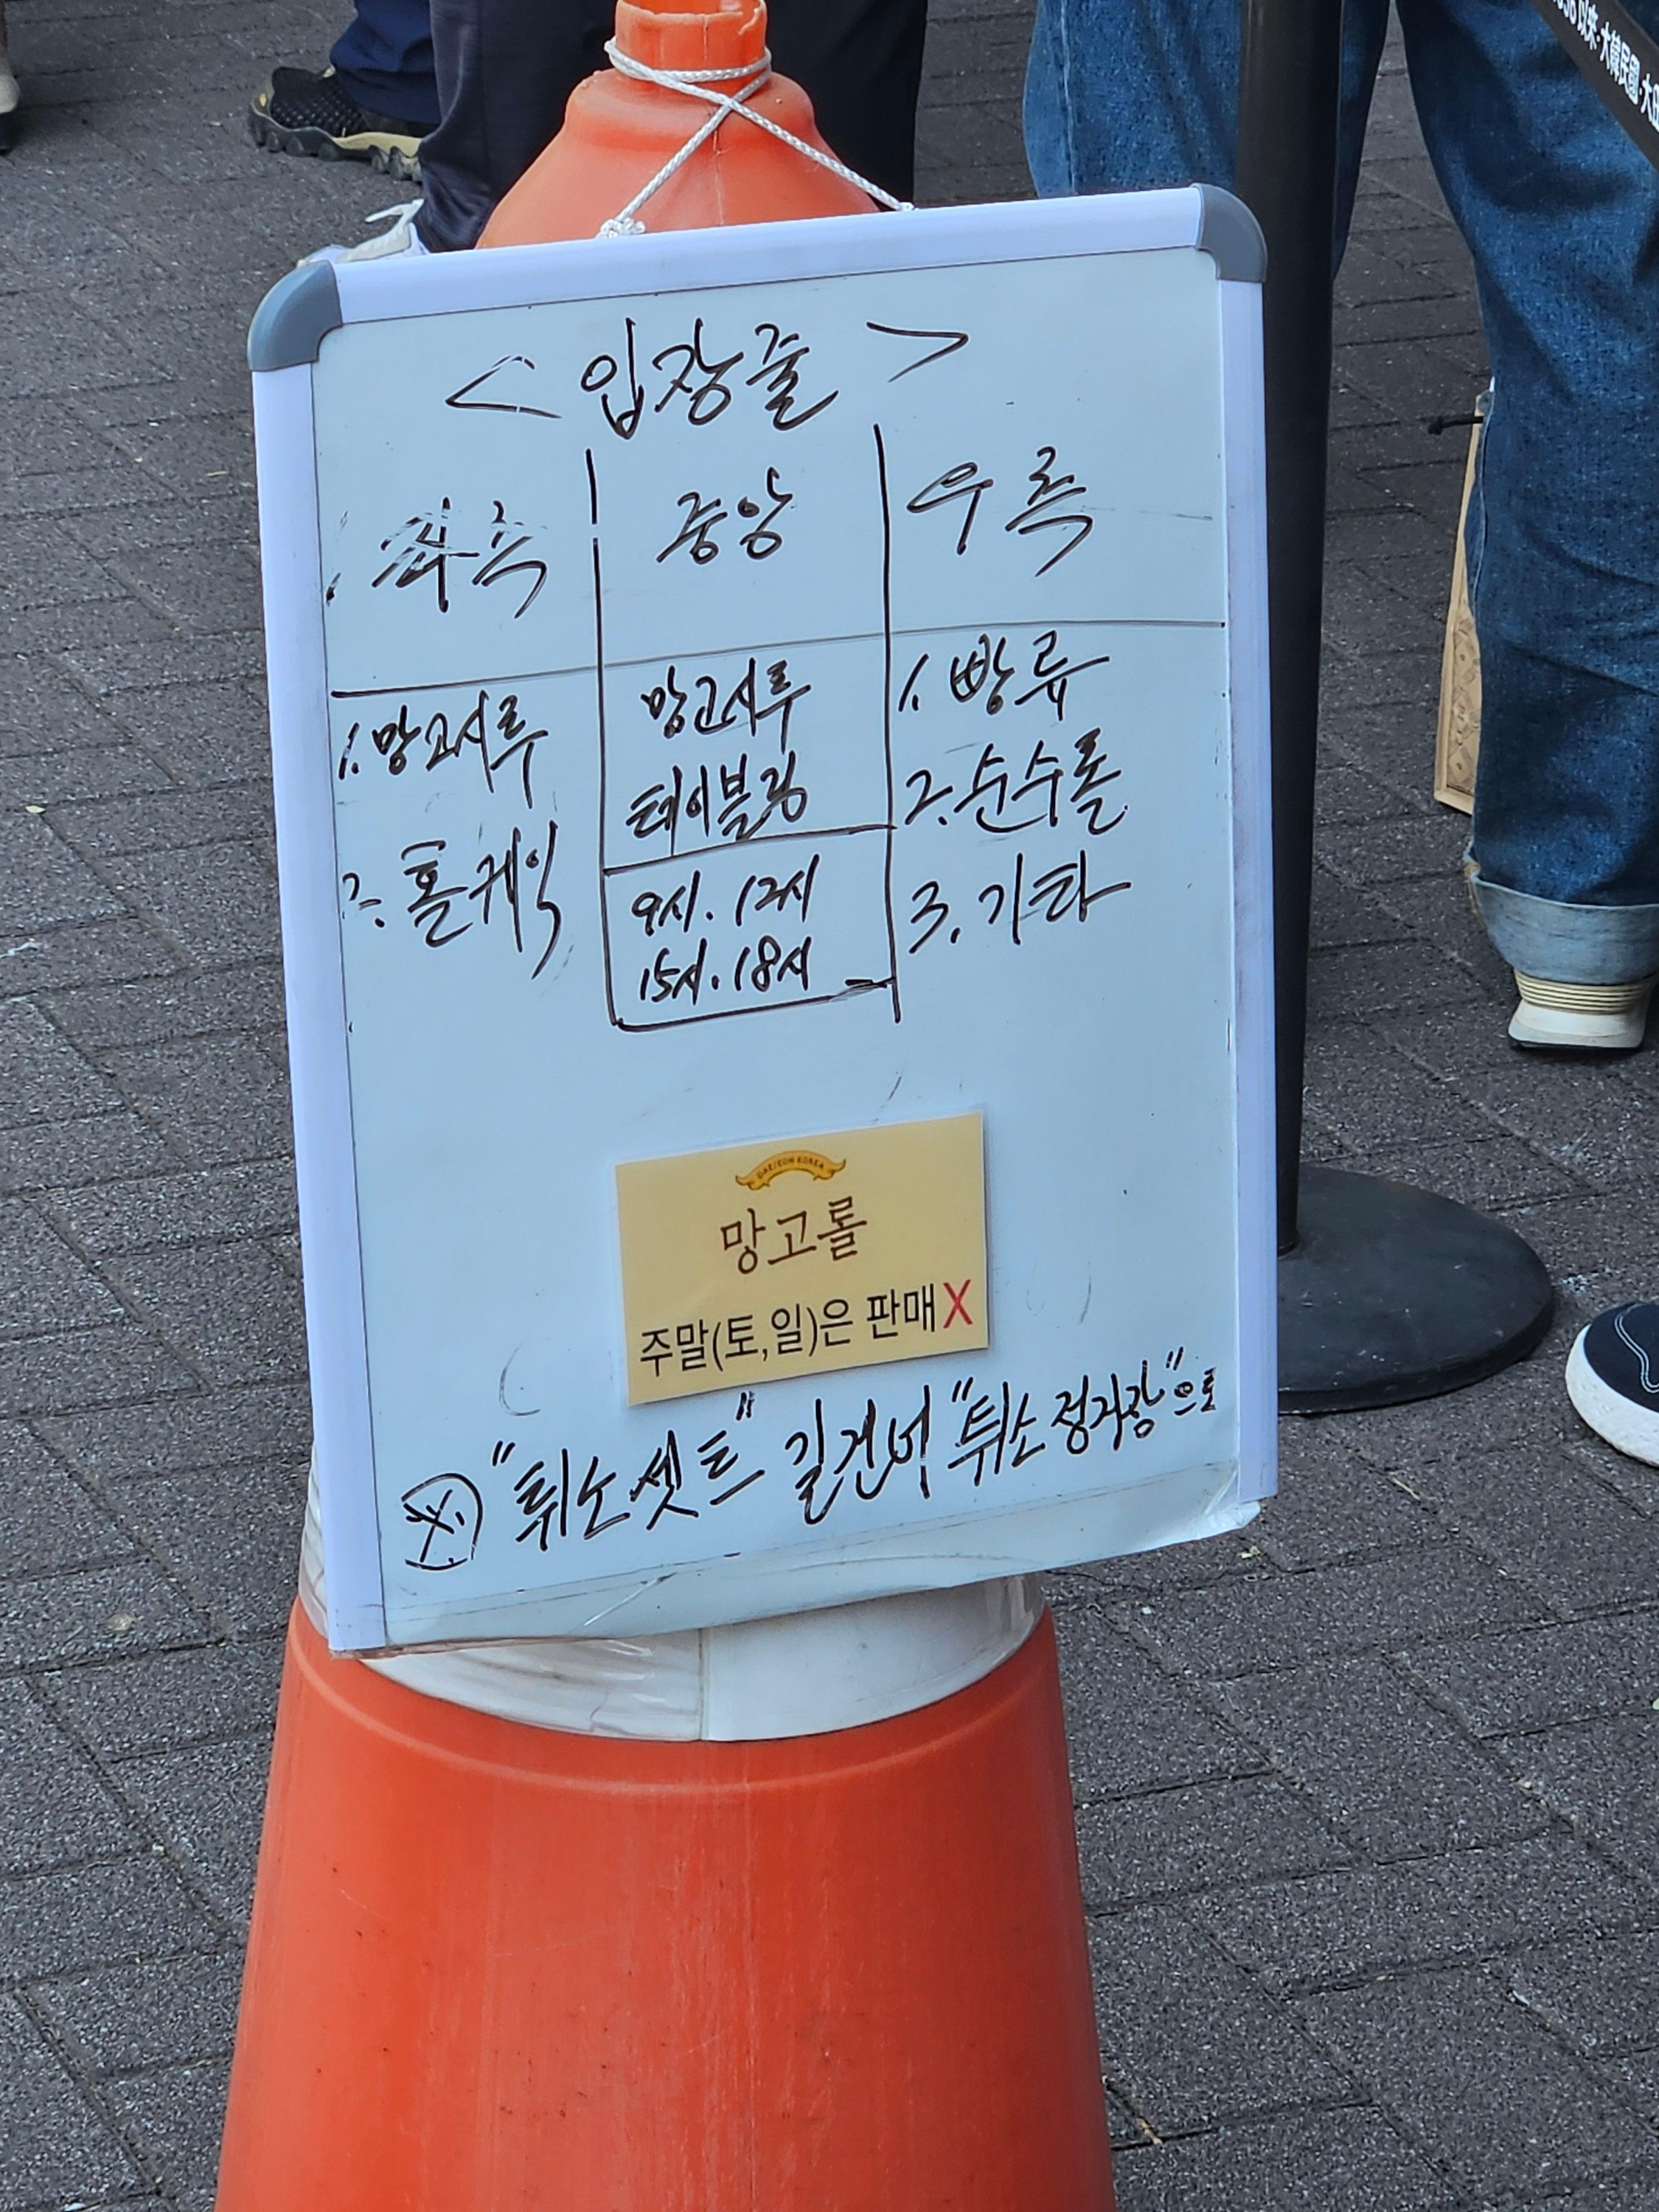 < 입장줄 >
좌측
중앙
우측
1. 망고시루
2. 홀케익
망고시루
테이블링
9시. 12시
15시. 18시
1. 빵류
2. 순수롤
3. 기타
DAEJEON KOREA
망고롤
주말(토,일)은 판매X
※ "튀소셋트" 길건너 "튀소정거장"으로
以来·大韓民國·大田